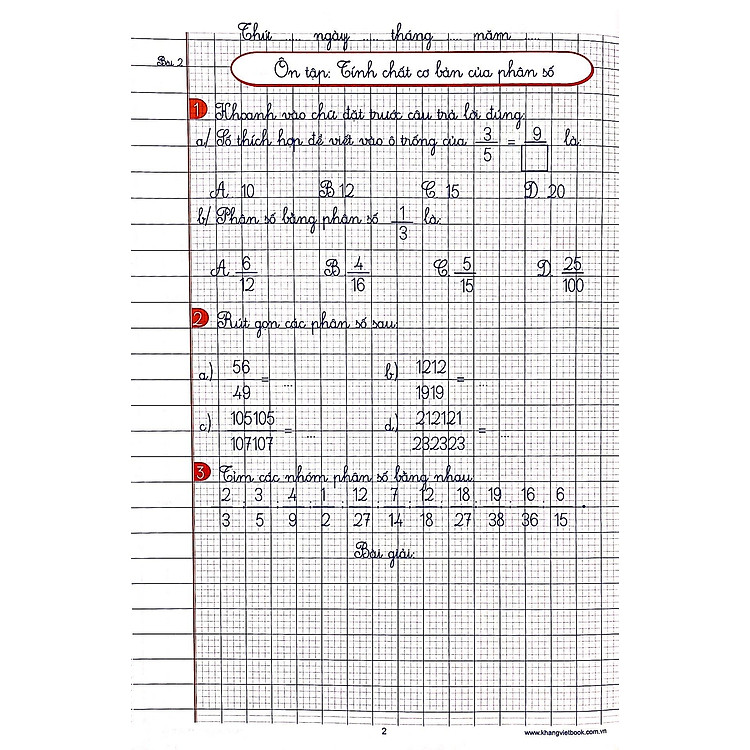 Thứ ..... ngày ..... tháng ..... năm .....
Bài 2
Ôn tập: Tính chất cơ bản của phân số
1 Khoanh vào chữ đặt trước câu trả lời đúng:
a/ Số thích hợp để viết vào ô trống của 3/5 = 9/□ là:
A. 10 B. 12 C. 15 D. 20
b/ Phân số bằng phân số 1/3 là:
A. 6/12 B. 4/16 C. 5/15 D. 25/100
2 Rút gọn các phân số sau:
a) 56/49 = ... b) 1212/1919 = ...
c) 105105/107107 = ... d) 212121/232323 = ...
3 Tìm các nhóm phân số bằng nhau:
2/3 ; 3/5 ; 4/9 ; 1/2 ; 12/27 ; 7/14 ; 12/18 ; 18/27 ; 19/38 ; 16/36 ; 6/15 .
Bài giải:
2
www.khangvietbook.com.vn